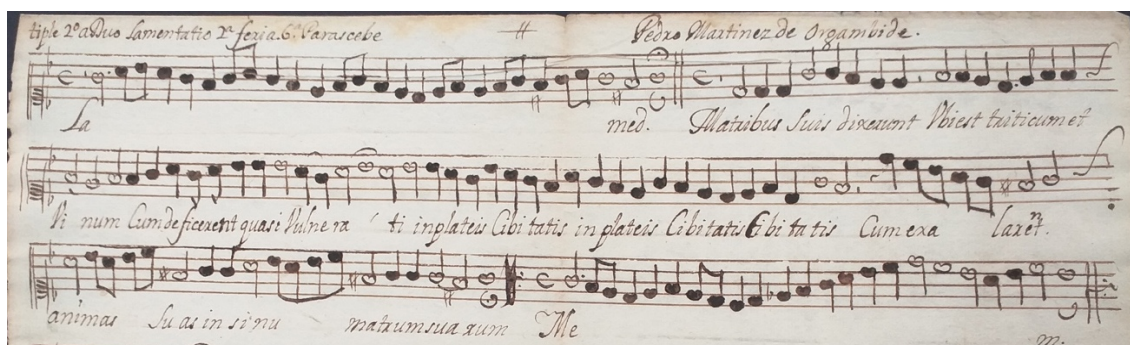 tiple 2º a Duo Lamentatio 2ª feria. 6ª Parascebe Pedro Martinez de Orgambide.
La med. Matribus Suis dixerunt Vbi est triticum et
Vi num Cum deficerent quasi Vulnera ti in plateis Cibi tatis in plateis Cibi tatis Cibi ta tis Cum exa laret.
animas Su as in si nu matrum sua rum Me
m.